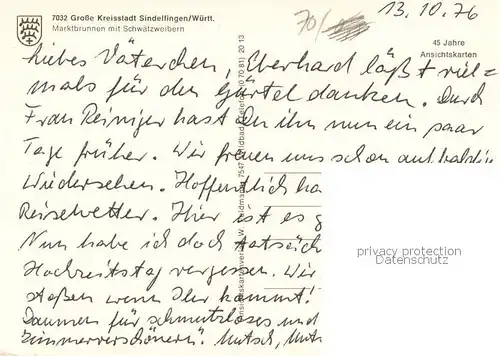 7032 Große Kreisstadt Sindelfingen/Württ.
Marktbrunnen mit Schwätzweibern
70/
13.10.76
45 Jahre
Ansichtskarten
liebes Väterchen, Eberhard läßt viel=
mals für den Gürtel danken. Durch
Frau Reiniger hast Du ihn nun ein paar
Tage früher. Wir freuen uns schon auf
Wiedersehen. Hoffentlich ha
Reisewetter. Hier ist es g
Nun habe ich doch tatsäch
Hochzeitstag vergessen. Wir
stoßen wenn Ihr kommt!
Daumen für schmutzloses und
Zimmerverschönern! Mutsch,
privacy protection
Datenschutz